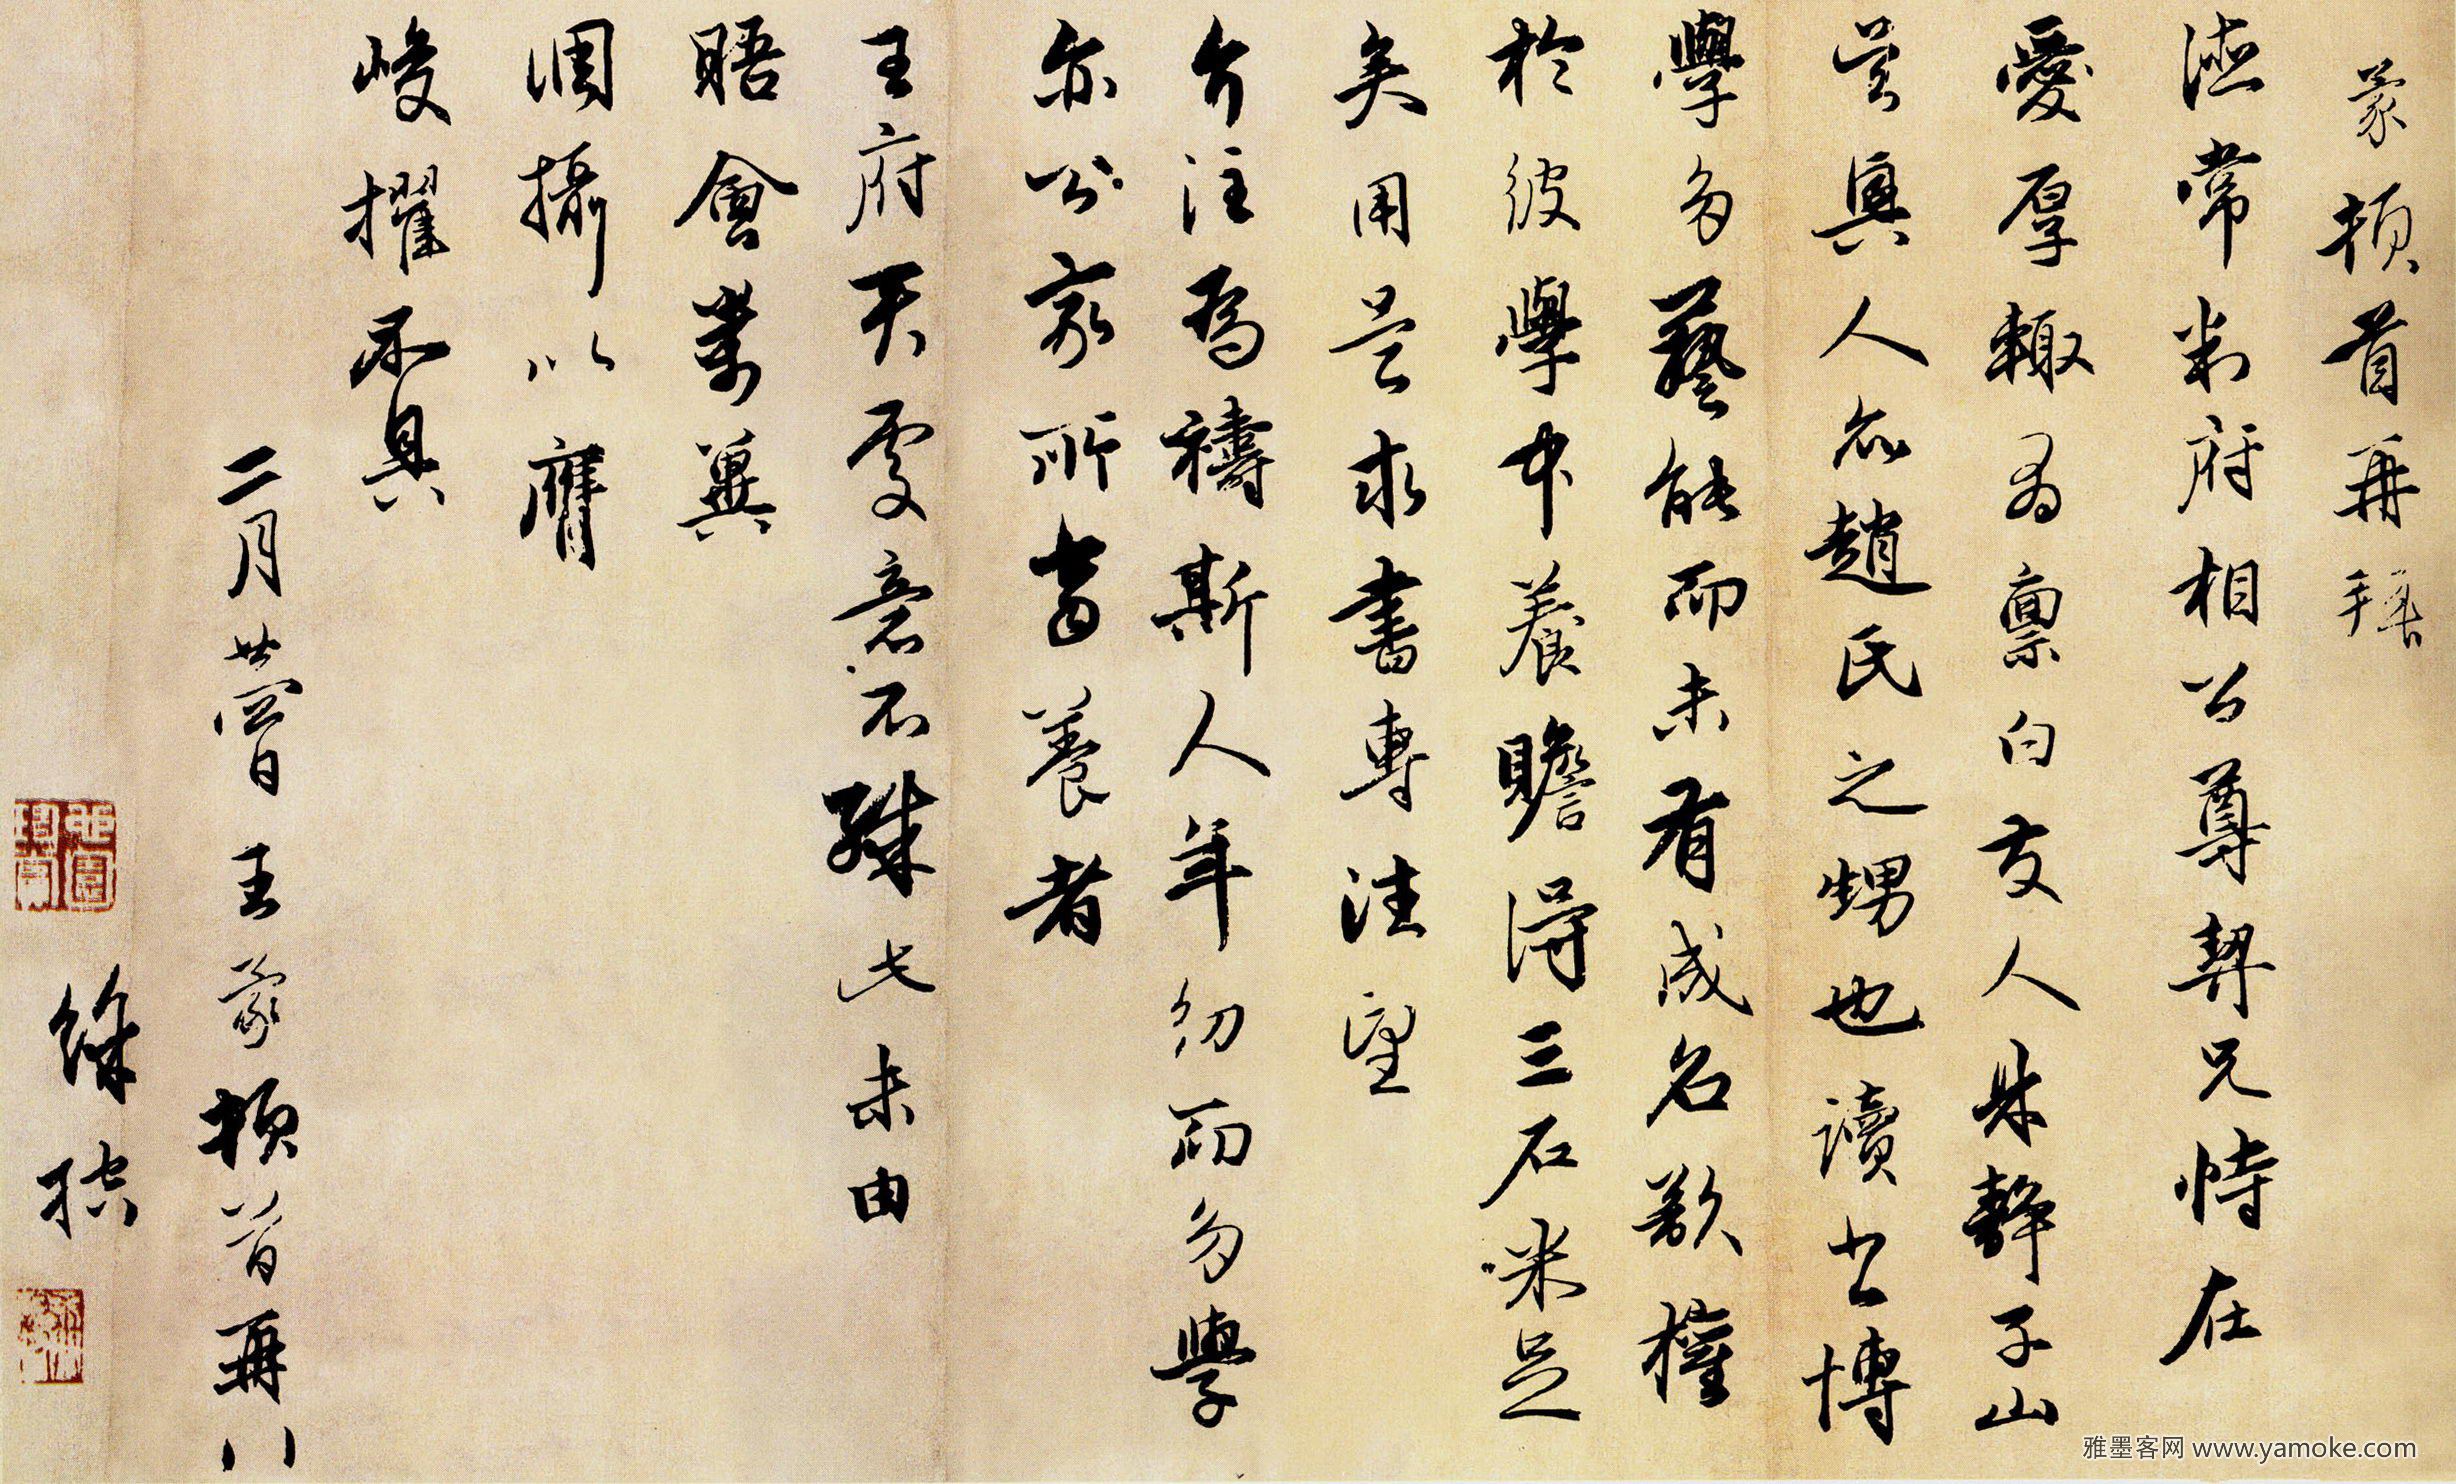 蒙頓首再拜
德常判府相公尊契兄恃在
愛厚輒為稟白友人靜子山
吳興人亦趙氏之甥也讀書博
學多藝能而未有成名欲權
於彼學中養贍得三石米足
矣用是求書專注望
介注為禱斯人年幼而多學
亦公家所當養者
王府天處意不殊此未由
晤會萬冀
調攝以膺
峻擢不具
二月廿四日王蒙頓首再拜
雅墨客网 www.yamoke.com